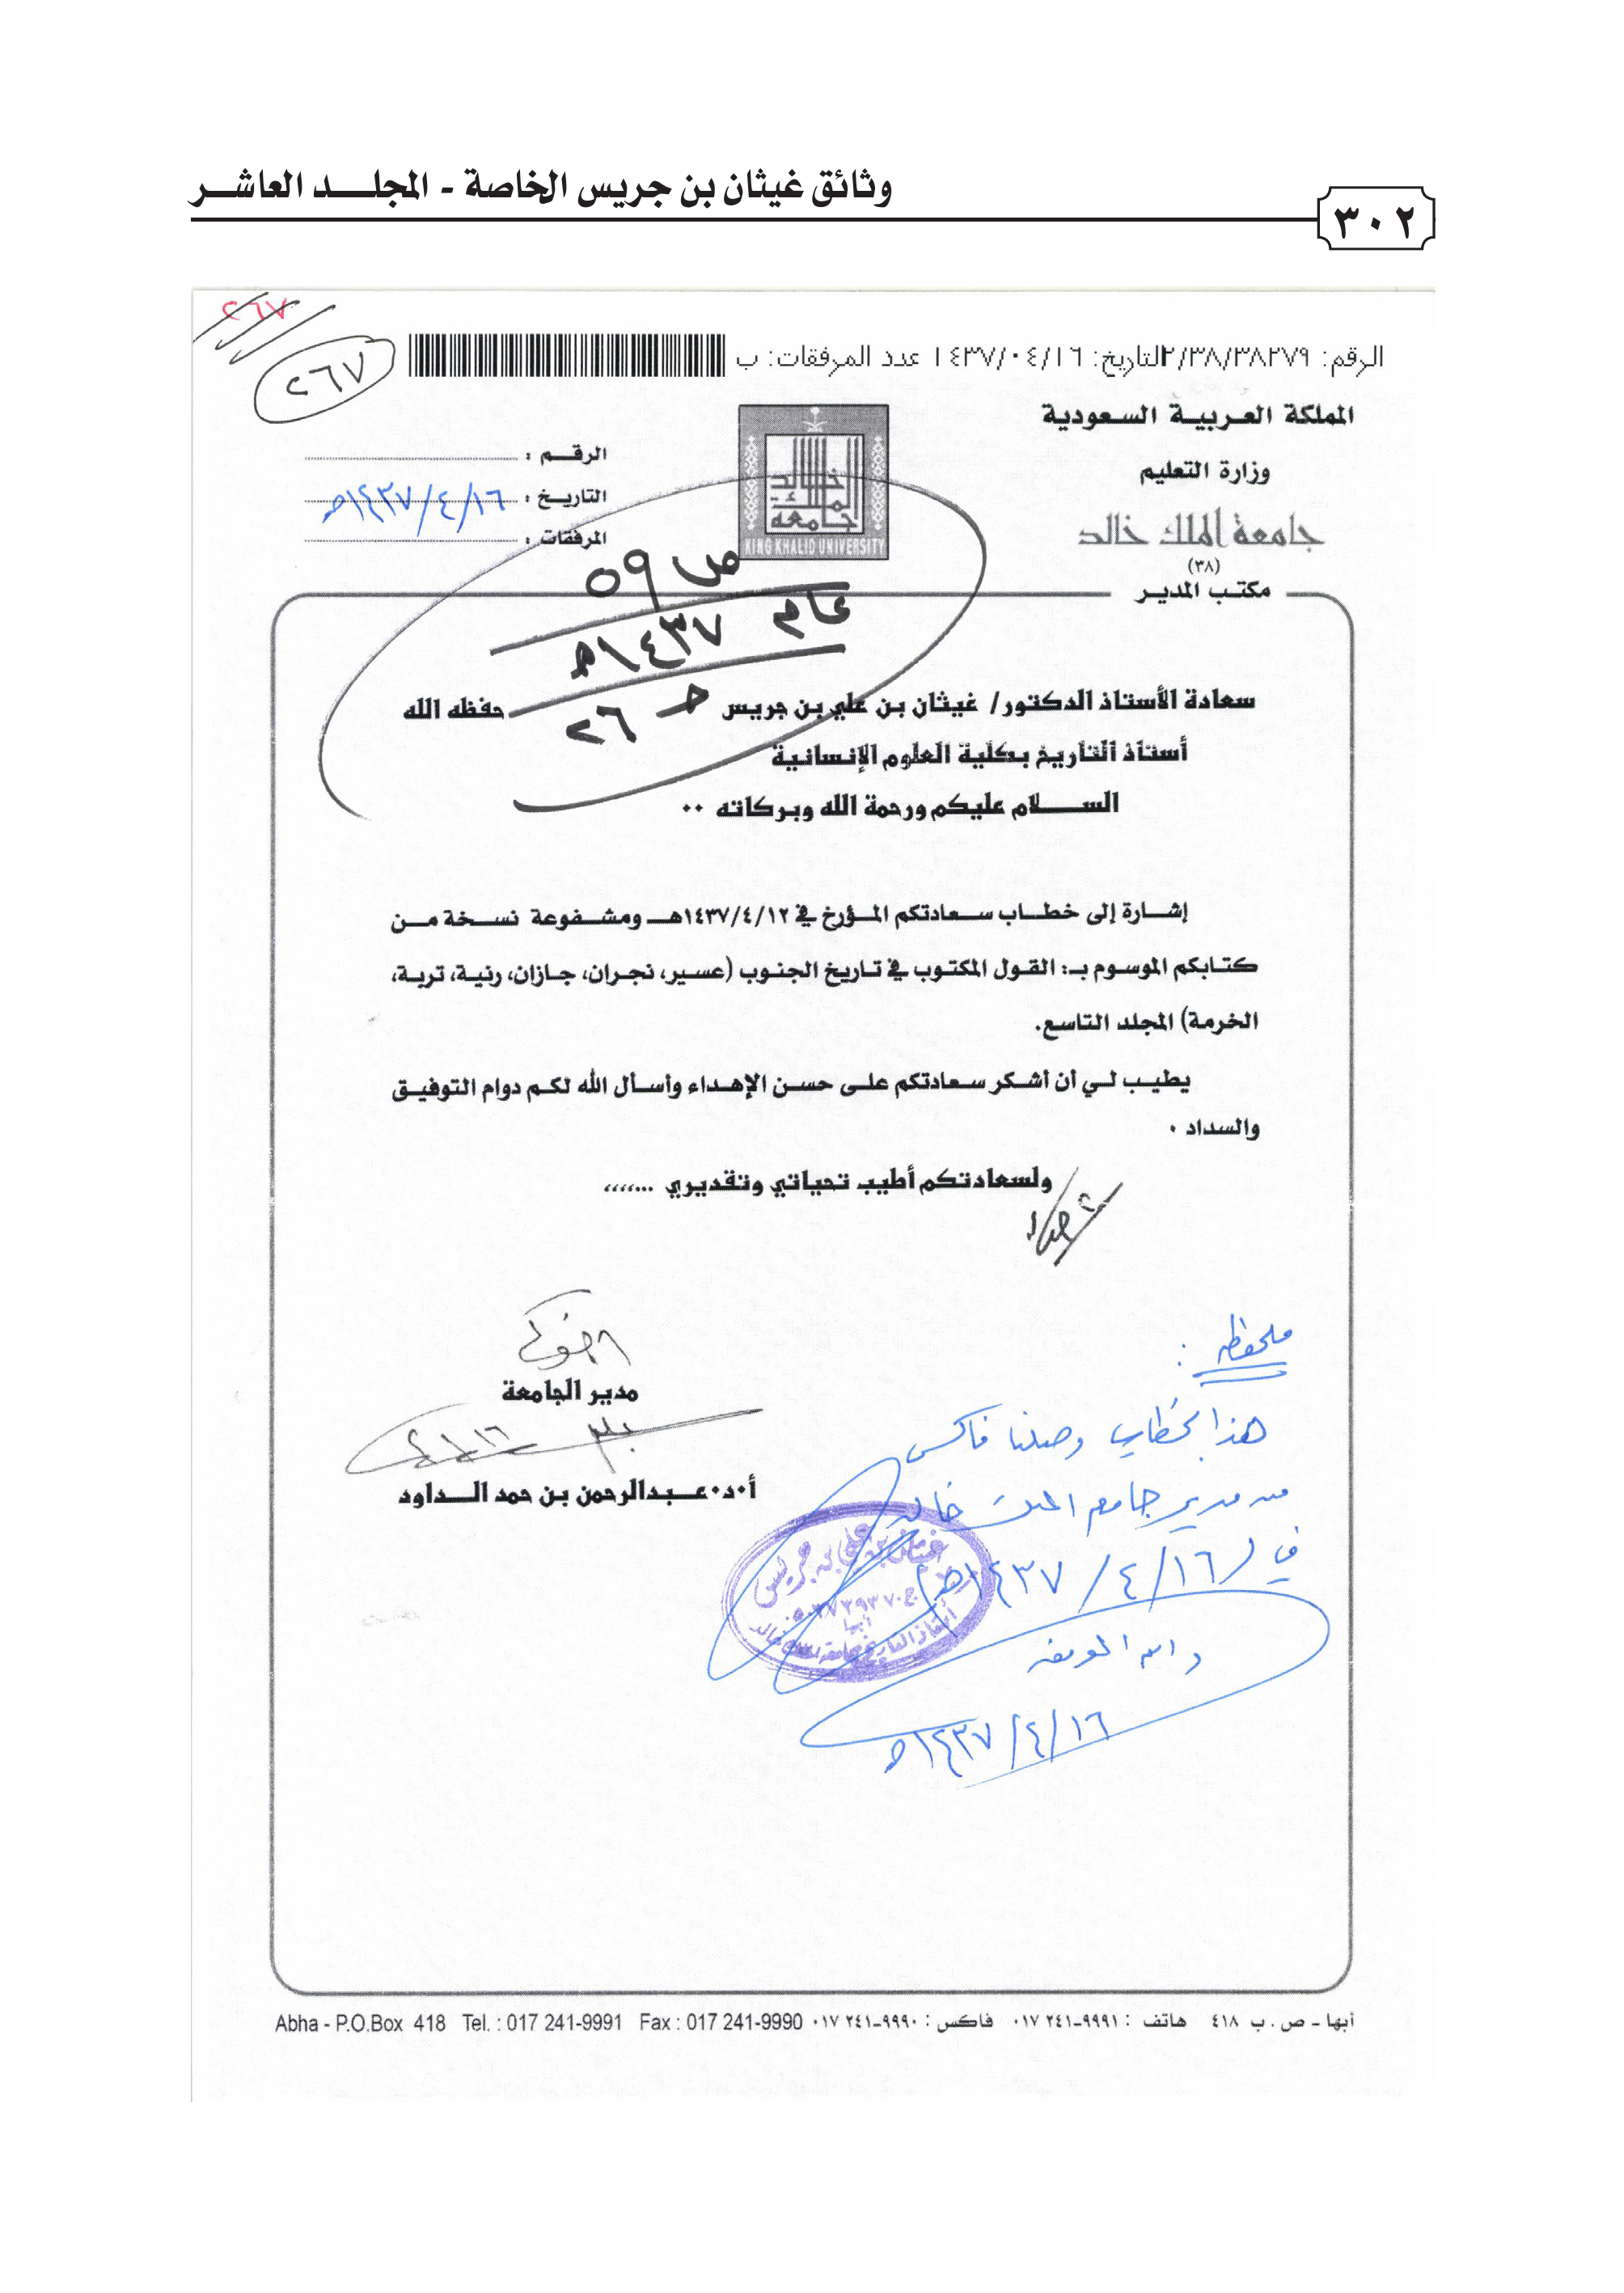 وثائق غيثان بن جريس الخاصة - المجلد العاشر
٣٠٢
٢٦٧
٢٦٧
الرقم: ٢/٣٨/٣٨٢٧٩ التاريخ: ١٤٣٧/٠٤/١٦ عدد المرفقات: ب
المملكة العربية السعودية
وزارة التعليم
جامعة الملك خالد
(٣٨)
مكتب المدير
جامعة الملك خالد
KING KHALID UNIVERSITY
الرقم :
التاريخ : ١٤٣٧/٤/١٦هـ
المرفقات :
ص ٥٩
عام ١٤٣٧هـ
حـ ٢٦
سعادة الأستاذ الدكتور/ غيثان بن علي بن جريس حفظه الله
أستاذ التاريخ بكلية العلوم الإنسانية
السلام عليكم ورحمة الله وبركاته ..
إشارة إلى خطاب سعادتكم المؤرخ في ١٤٣٧/٤/١٢هـ ومشفوعة نسخة من
كتابكم الموسوم بـ: القول المكتوب في تاريخ الجنوب (عسير، نجران، جازان، رنية، تربة،
الخرمة) المجلد التاسع.
يطيب لي أن أشكر سعادتكم على حسن الإهداء وأسأل الله لكم دوام التوفيق
والسداد .
ولسعادتكم أطيب تحياتي وتقديري ...،،،،
مدير الجامعة
أ.د.عبدالرحمن بن حمد الداود
ملحوظة :
هذا الخطاب وصلنا فاكس
من مدير جامعة الملك خالد
في (١٤٣٧/٤/١٦هـ)
والله الموفق
١٤٣٧/٤/١٦هـ
غيثان بن علي بن جريس
أبها
أستاذ التاريخ جامعة الملك خالد
أبها - ص . ب ٤١٨ هاتف : ٩٩٩١-٢٤١ ٠١٧ فاكس : ٩٩٩٠-٢٤١ ٠١٧ Abha - P.O.Box 418 Tel. : 017 241-9991 Fax : 017 241-9990